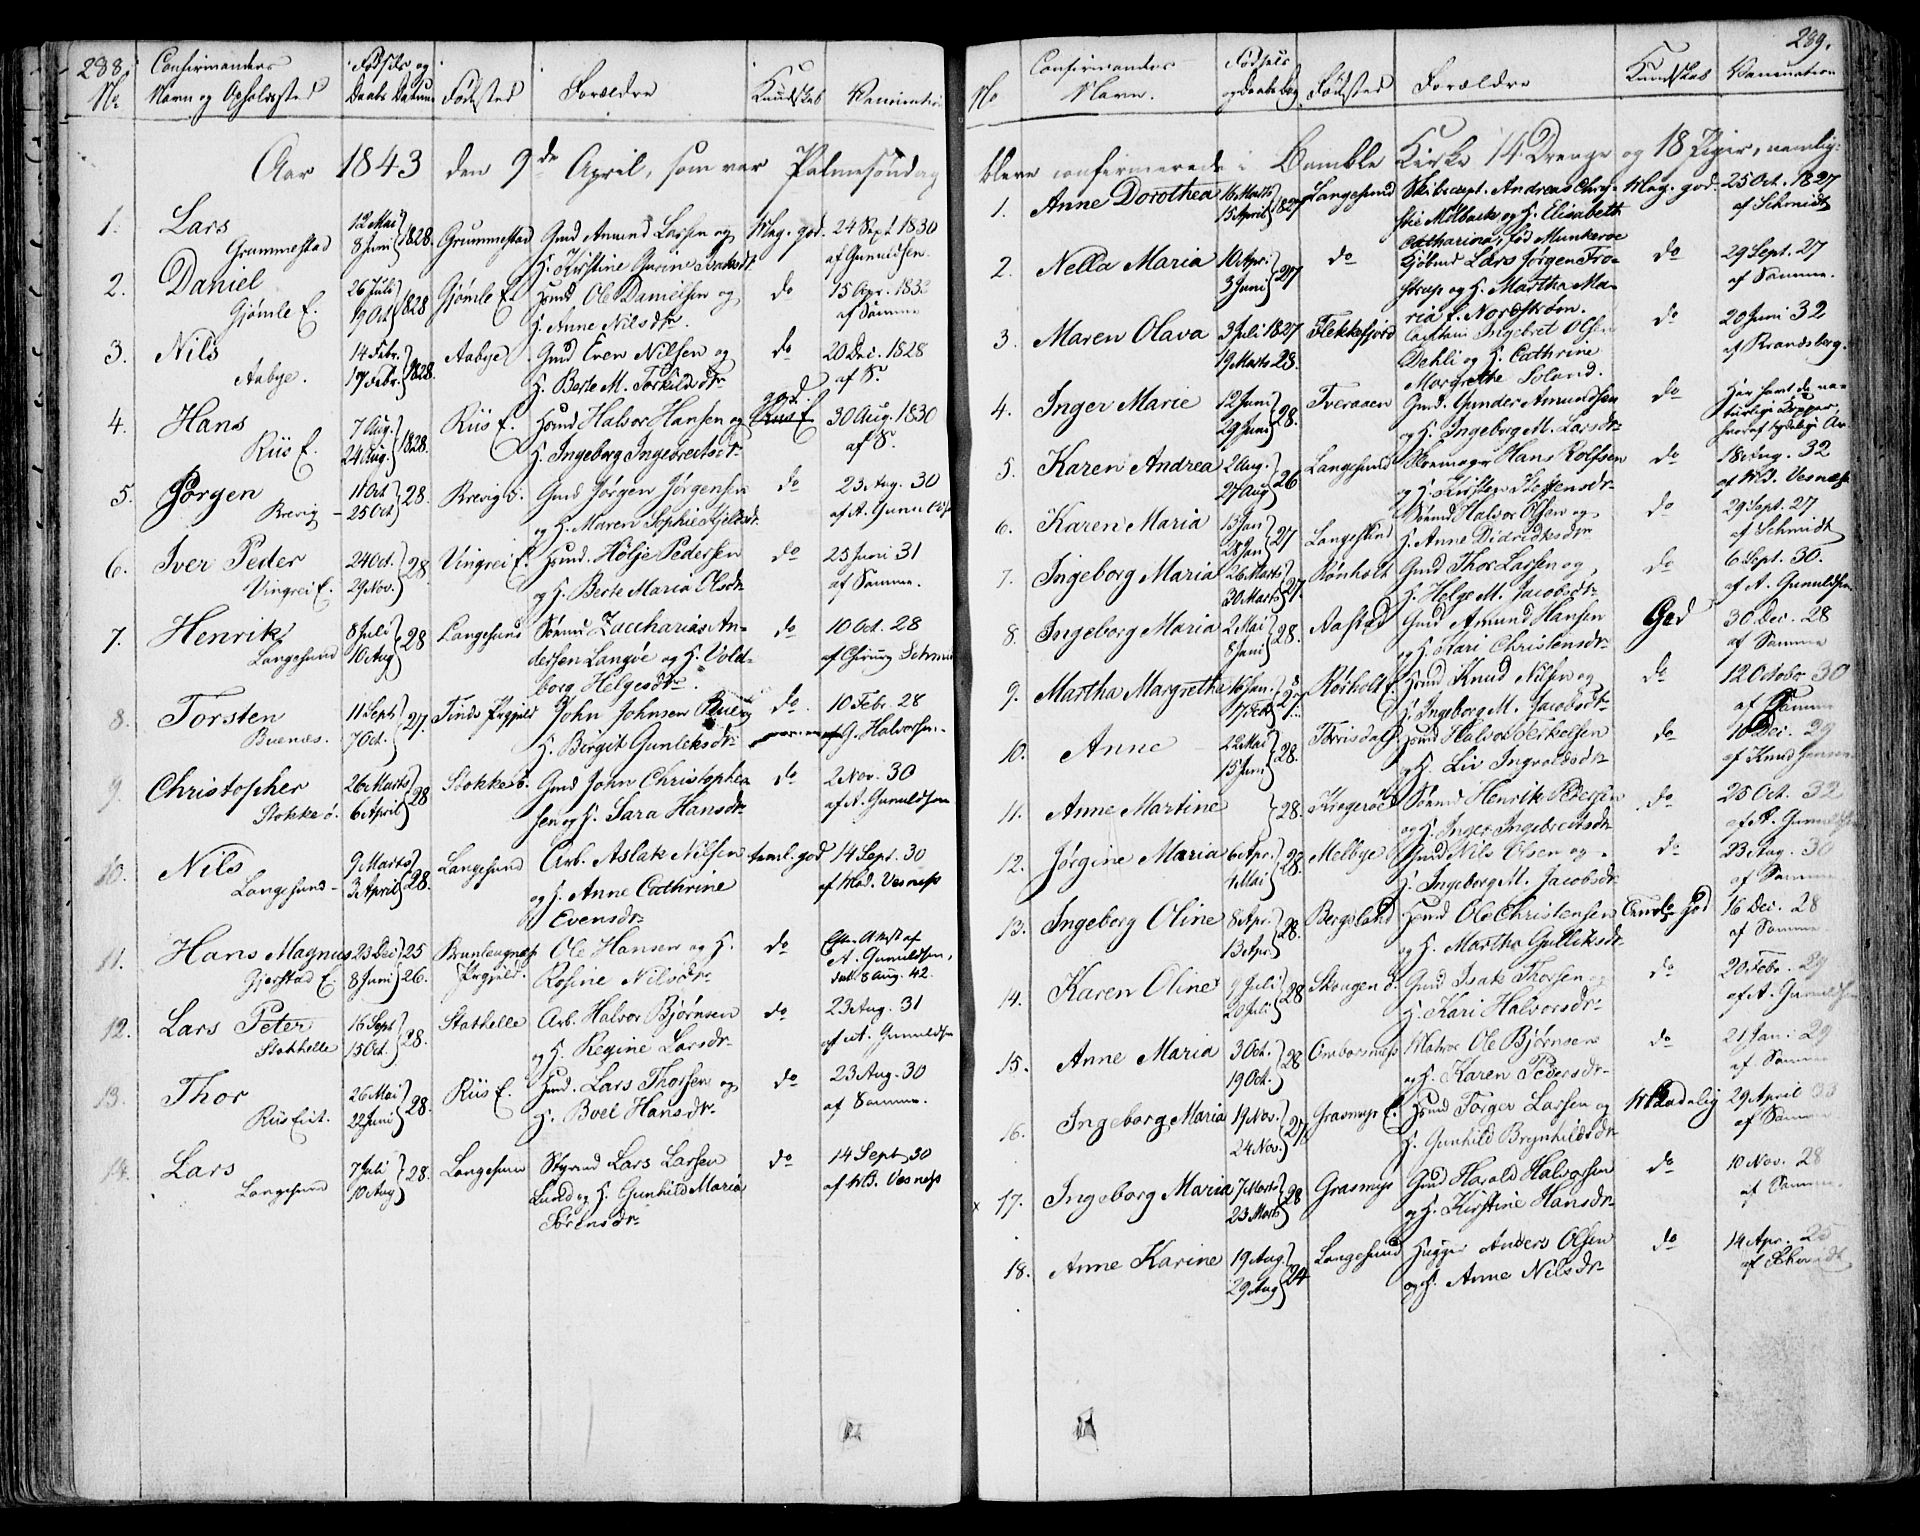 288.
No
Confirmandens
Navn og Opholdssted
Fødsels og
Daabs Datum
Fødested
Forældre
Kundskab
Vaccination
Aar 1843 den 9de April, som var Palmesøndag
1. Lars 12 Mai 1828. Grummestad Gmd Amund Larsen og Meg. god. 24 Sept 1830
Grummestad 8 Juni H. Kirstine Gurine Isaksdr af Gunuldsen.
2. Daniel 26 Juli 1828 Gjømle E. Hmd Ole Danielsen og do 15 Apr. 1833
Gjømle E. 19 Oct H. Anne Nilsdr. af Samme
3. Nils 14 Febr. 1828. Aabye Gmd Even Nilsen og do 20 Dec. 1828
Aabye. 17 Febr. H. Berte M. Torkildsdr af S.
4. Hans 7 Aug. 1828. Riis E. Hmd Halvor Hansen og god. 30 Aug. 1830
Riis E. 24 Aug. H. Ingeborg Ingebretsdr af S.
5. Jørgen 11 Oct 28. Brevig Gmd Jørgen Jørgensen do 23 Aug. 30
Brevig 25 Oct og H. Maren Sophie Kjeldsdr. af A. Gunuldsen
6. Iver Peder 24 Oct. 28 Vingrei E. Hmd. Hølje Pedersen do 25 Juni 31
Vingrei E. 29 Nov. og H. Berte Maria Olsdr af Samme.
7. Henrik 8 Juli 28 Langesund Sømd Zaccharias An- do 10 Oct. 28
Langesund 10 Aug dersen Langøe og H. Vold- af Chirurg Schmidt
borg Helgesdr.
8. Torsten 11 Sept 27. Tinds Prgjeld John Johnsen og do 10 Febr. 28
Buenæs. 7 Oct. H. Birgit Gunleksdr af G. Halvorsen.
9. Christopher 26 Marts 28 Stokke ø. Gmd John Christopher- do 2 Nov. 30
Stokke ø. 6 April sen og H. Sara Hansdr af A. Gunuldsen
10. Nils 9 Marts 28. Langesund Arb. Aslak Nilsen teml. god 14 Sept. 30
Langesund 3 April og H. Anne Cathrine af Mad. Vesnæss
Evensdr
11. Hans Magnus 23 Dec 25 Brunlaugnæs Ole Hansen og H. do Efter Attest af
Gjerstad E. 8 Juni 26. Prgjeld. Rosine Nilsdr A. Gunuldsen,
dat. 8 Aug. 42.
12. Lars Peter 16 Sept 28. Stathelle Arb. Halvor Bjørnsen do 23 Aug. 31
Stathelle 15 Oct. og H. Regine Larsdr af A. Gunuldsen
13. Thor 26 Mai 28. Riis E. Hmd. Lars Thorsen og do 23 Aug. 30
Riis Eit. 22 Juni H. Boel Hansdr af Samme.
14. Lars 7 Juli 28. Langesund Styrmd Lars Larsen do 14 Sept 30
Langesund 10 Aug Lund og H. Gunhild Maria af M. Vesnæss
Sørensdr
289.
No
Confirmandens
Navn.
Fødsels
og Daabs Dag
Fødested
Forældre
Kundskab
Vaccination
bleve confirmerede i Bamble Kirke 14 Drenge og 18 Piger, nemlig:
1. Anne Dorothea 16 Marts 1827 Langesund Skibscapt. Andreas Chry- Meg. god. 25 Oct. 1827
15 April stie Mølback og H. Elisabeth af Schmidt
Catharina, fød Munkeroe
2. Nella Maria 10 Apr. 27 do Kjøbmd Lars Jørgen Tro- do 29 Sept. 27
3 Juni strup og H. Martha Ma- af Samme.
ria f. Nordstrøm.
3. Maren Olava 3 Juli 1827 Flekkefjord Captain Ingebret Olsen do 20 Juni 32
19 Marts 28. Dehli og H. Cathrine af Brandsberg.
Margrethe Soland.
4. Inger Marie 12 Juni 28. Tveraaen Gmd. Gunder Amundsen do Har havt de na-
29 Juni og H. Ingeborg M. Larsdr turlige Kopper,
hvoraf tydelige Ar.
5. Karen Andrea 2 Aug. 26 Langesund Hans Rolfsen do 18 Aug. 32
27 Aug og H. Kirsten Stephensdr af Md. Vesnæss
6. Karen Maria 13 Jan 27 Langesund Sømd Halvor Olsen og do 29 Sept. 27
28 Jan H. Anne Didriksdr af Schmidt
7. Ingeborg Maria 26 Marts 27. Rønholt Gmd Thor Larsen og do 6 Sept. 30.
30 Marts H. Helge M. Jacobsdr af A. Gunuldsen
8. Ingeborg Maria 2 Mai 28. Aastad Gmd Amund Hansen God 30 Dec. 28
8 Juni og H. Kari Christensdr af Samme
9. Martha Margrethe 18 Jan. 27 Rørholt E. Hmd Knud Nilsen og do 12 Octobr 30
H. Ingeborg M. Jacobsdr af Samme
10. Anne 22 Mai 28. Tørrisdal Hmd Halvor Terkelsen do 10 Dec. 29
15 Juni og H. Liv Ingvoldsdr af Knud Jensen
11. Anne Martine 28. Kragerøe Sømd Henrik Pedersen do 25 Oct. 32
og H. Inger Ingebretsdr af A. Gunuldsen
12. Jørgine Maria 6 Apr. 28. Melbye Gmd Nils Olsen og do 23 Aug. 30
1 Mai H. Ingeborg M. Jacobsdr af Samme
13. Ingeborg Oline 8 Apr. 28. Bergsland Hmd Ole Christensen god 16 Dec. 28
13 Apr. og H. Martha Gulliksdr. af Samme
14. Karen Oline 9 Juli 28 Skougen ø. Gmd Isak Thorsen og do 20 Febr. 29
20 Juli H. Kari Halvorsdr af A. Gunuldsen
15. Anne Maria 3 Oct. 28 Omborsnæs Matros Ole Bjørnsen do 21 Jan. 29
19 Oct. og H. Karen Pedersdr af Samme
16. Ingeborg Maria 19 Nov. 27. Grasmyr E. Hmd Torger Larsen og Maadelig 29 April 33
24 Nov. H. Gunhild Brynhildsdr af Samme
x 17. Ingeborg Maria 7 Marts 28 Grasmyr Gmd Harald Halvorsen do 10 Nov. 28
23 Marts og H. Kirstine Hansdr af Samme.
18. Anne Karine 19 Aug. 24 Langesund Hugger Anders Olsen do 14 Apr. 25
29 Aug og H. Anne Nilsdr af Schmidt